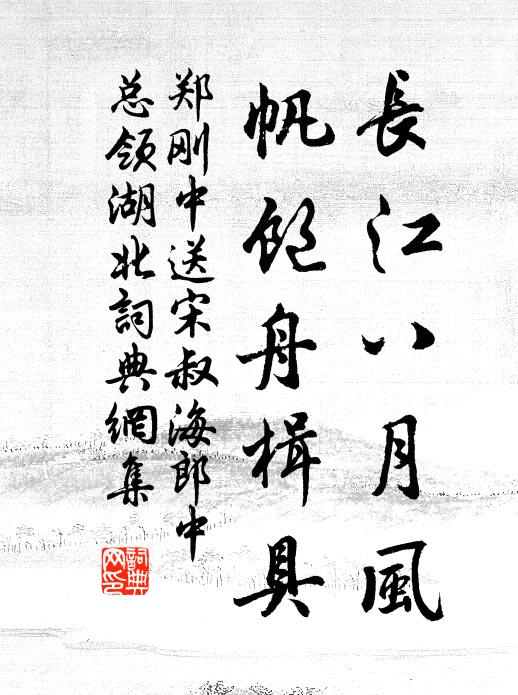 長江八月風
帆飽舟楫具
郑刚中送宋叔海郎中
总领湖北詞典網集
詞典网印